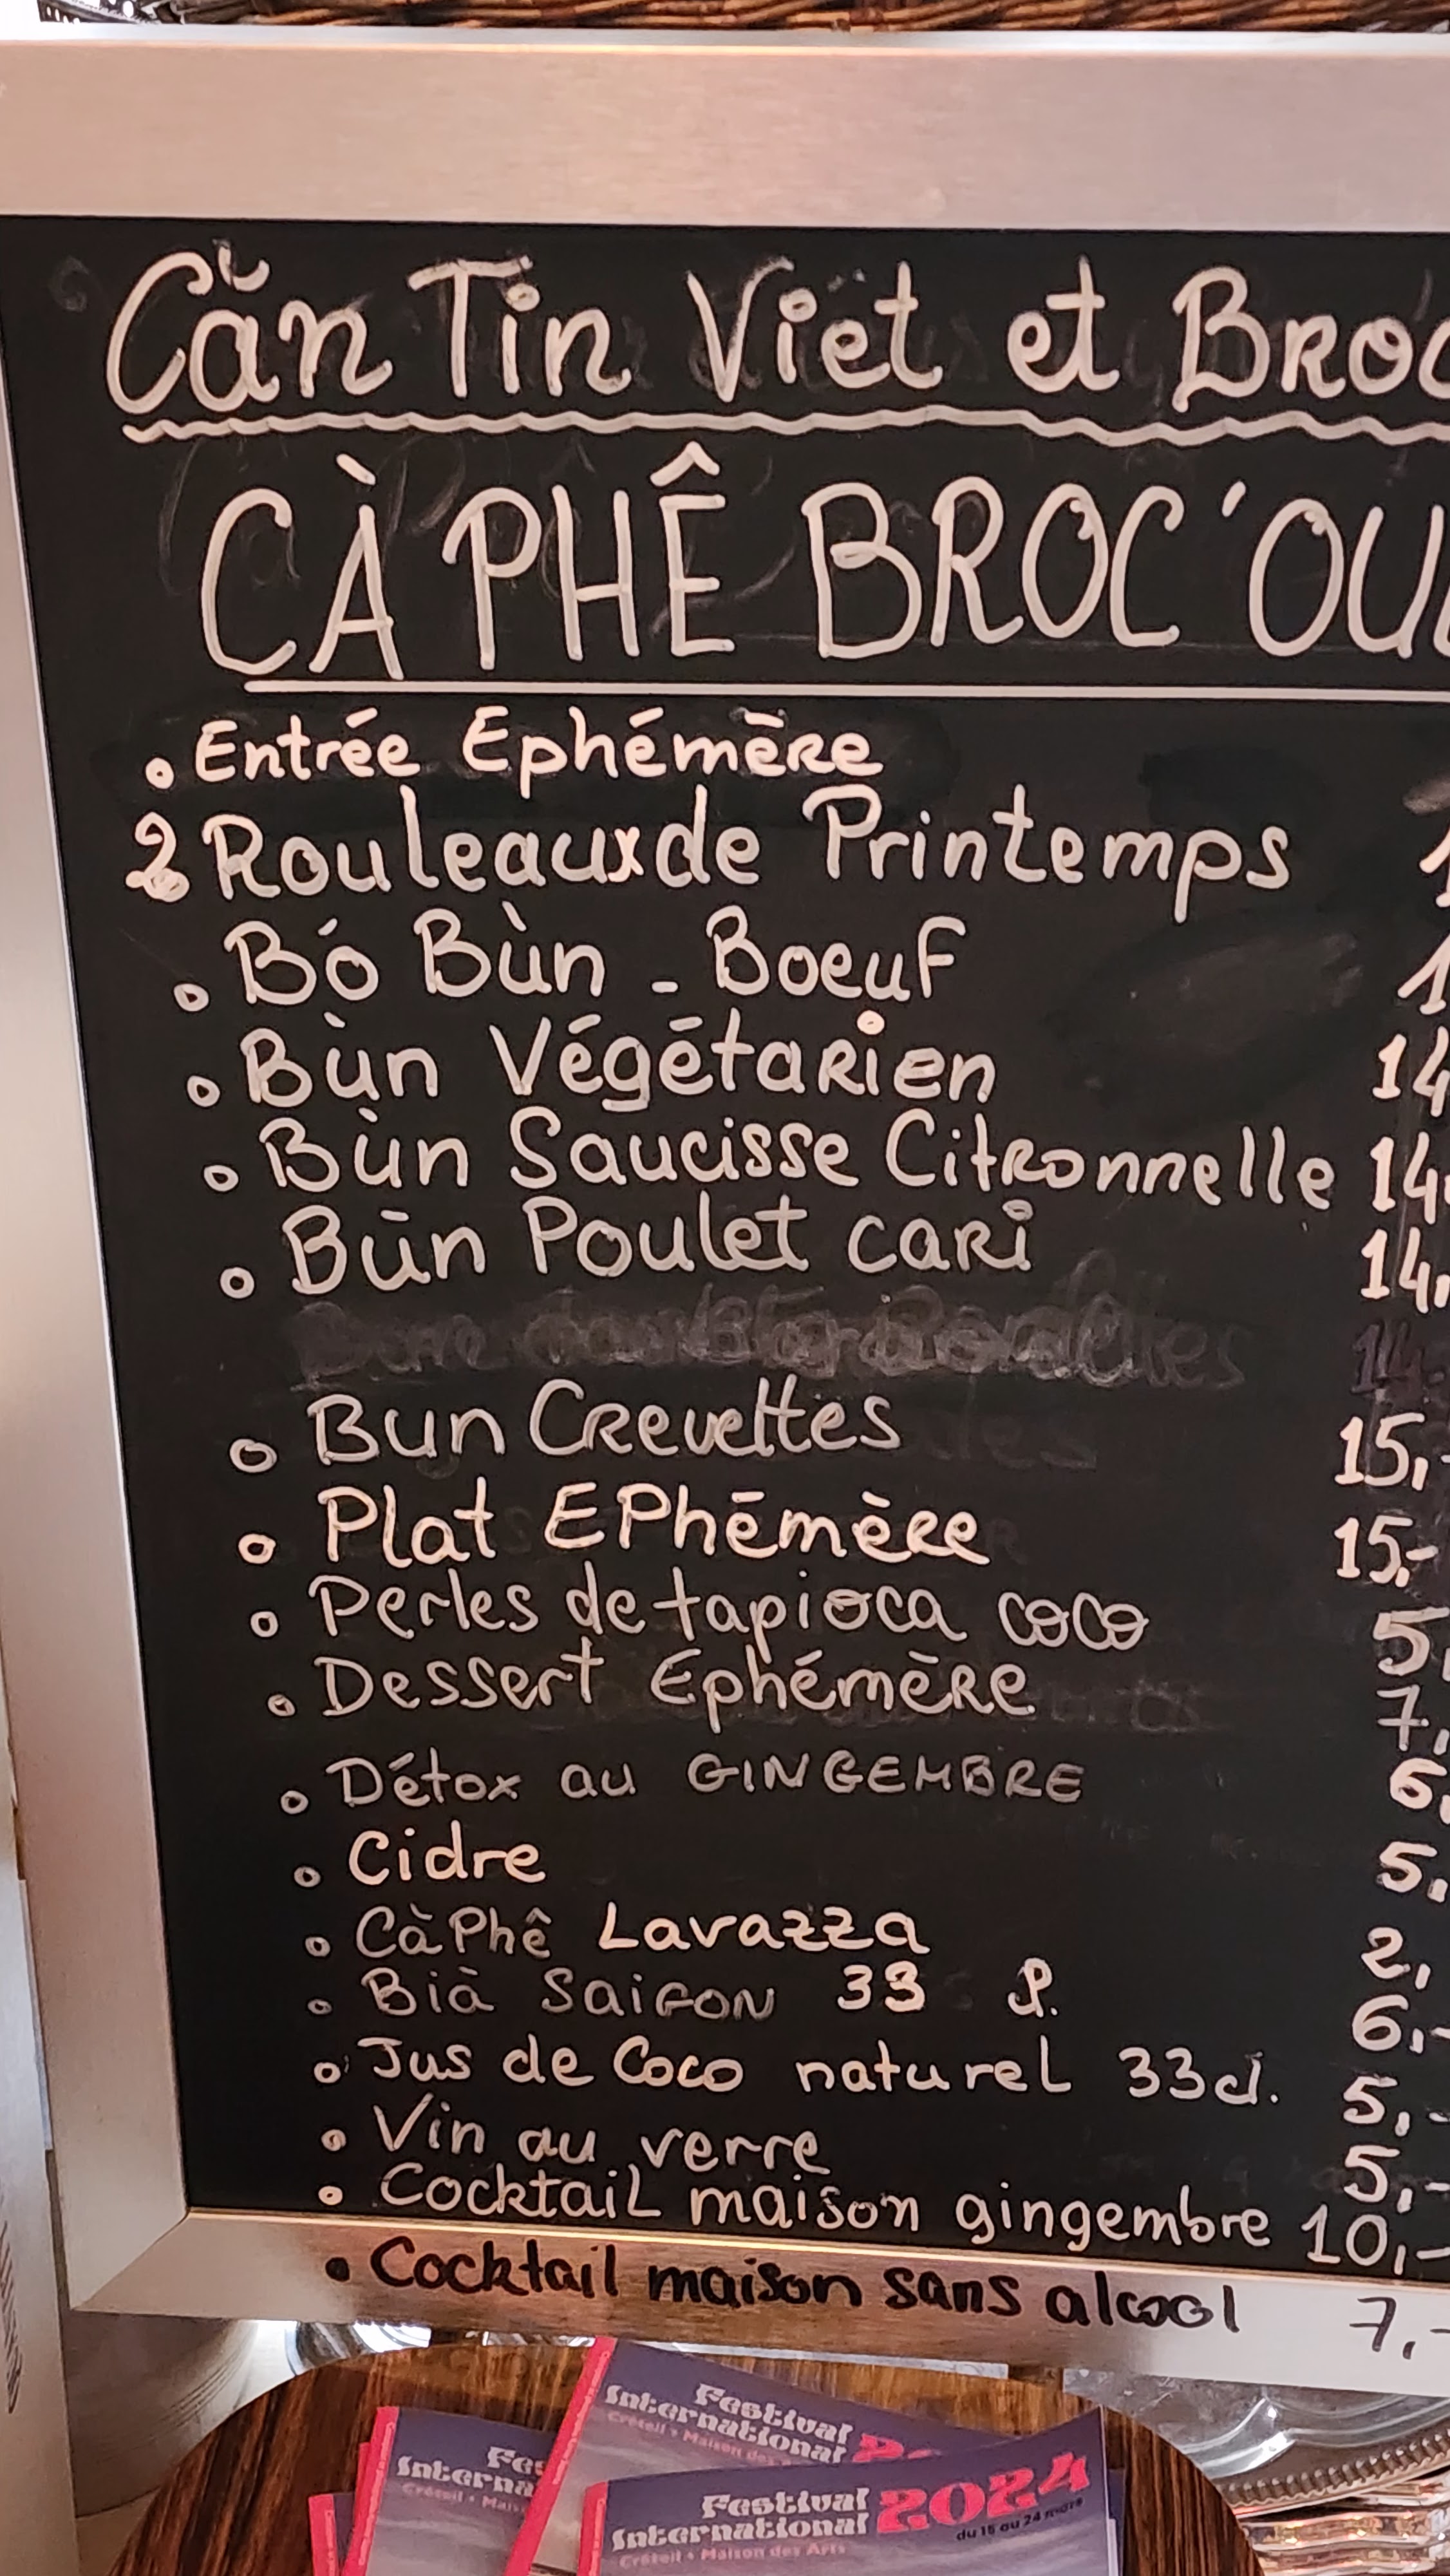 Căn Tin Viet et Broc
CÀ PHÊ BROC'OU
• Entrée Ephémère
2 Rouleaux de Printemps 1
• Bó Bùn - Boeuf 1
• Bùn Végétarien 14
• Bùn Saucisse Citronnelle 14,
• Bùn Poulet cari 14,
• Bun Crevettes 15,-
• Plat EPhémère 15,-
• Perles de tapioca coco 5,
• Dessert Ephémère 7,
• Détox au GINGEMBRE 6,
• Cidre 5,
• Cà Phê Lavazza 2,
• Bià SaiGON 33 6,-
• Jus de Coco naturel 33cl. 5,-
• Vin au verre 5,-
• Cocktail maison gingembre 10,-
• Cocktail maison sans alcool 7,-
Festival
International
Créteil • Maison des
Fes
Interna
Créteil • Mais
Festival 2024
International du 15 au 24 mars
Créteil • Maison des Arts